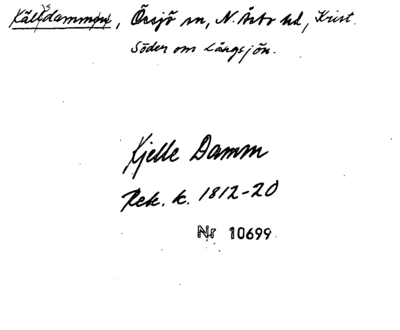 Källsdammen, Örsjö sn, N. Åsbo hd, Krist.
Söder om Långsjön.
Kjelle Damm
Rek. k. 1812-20
Nr 10699